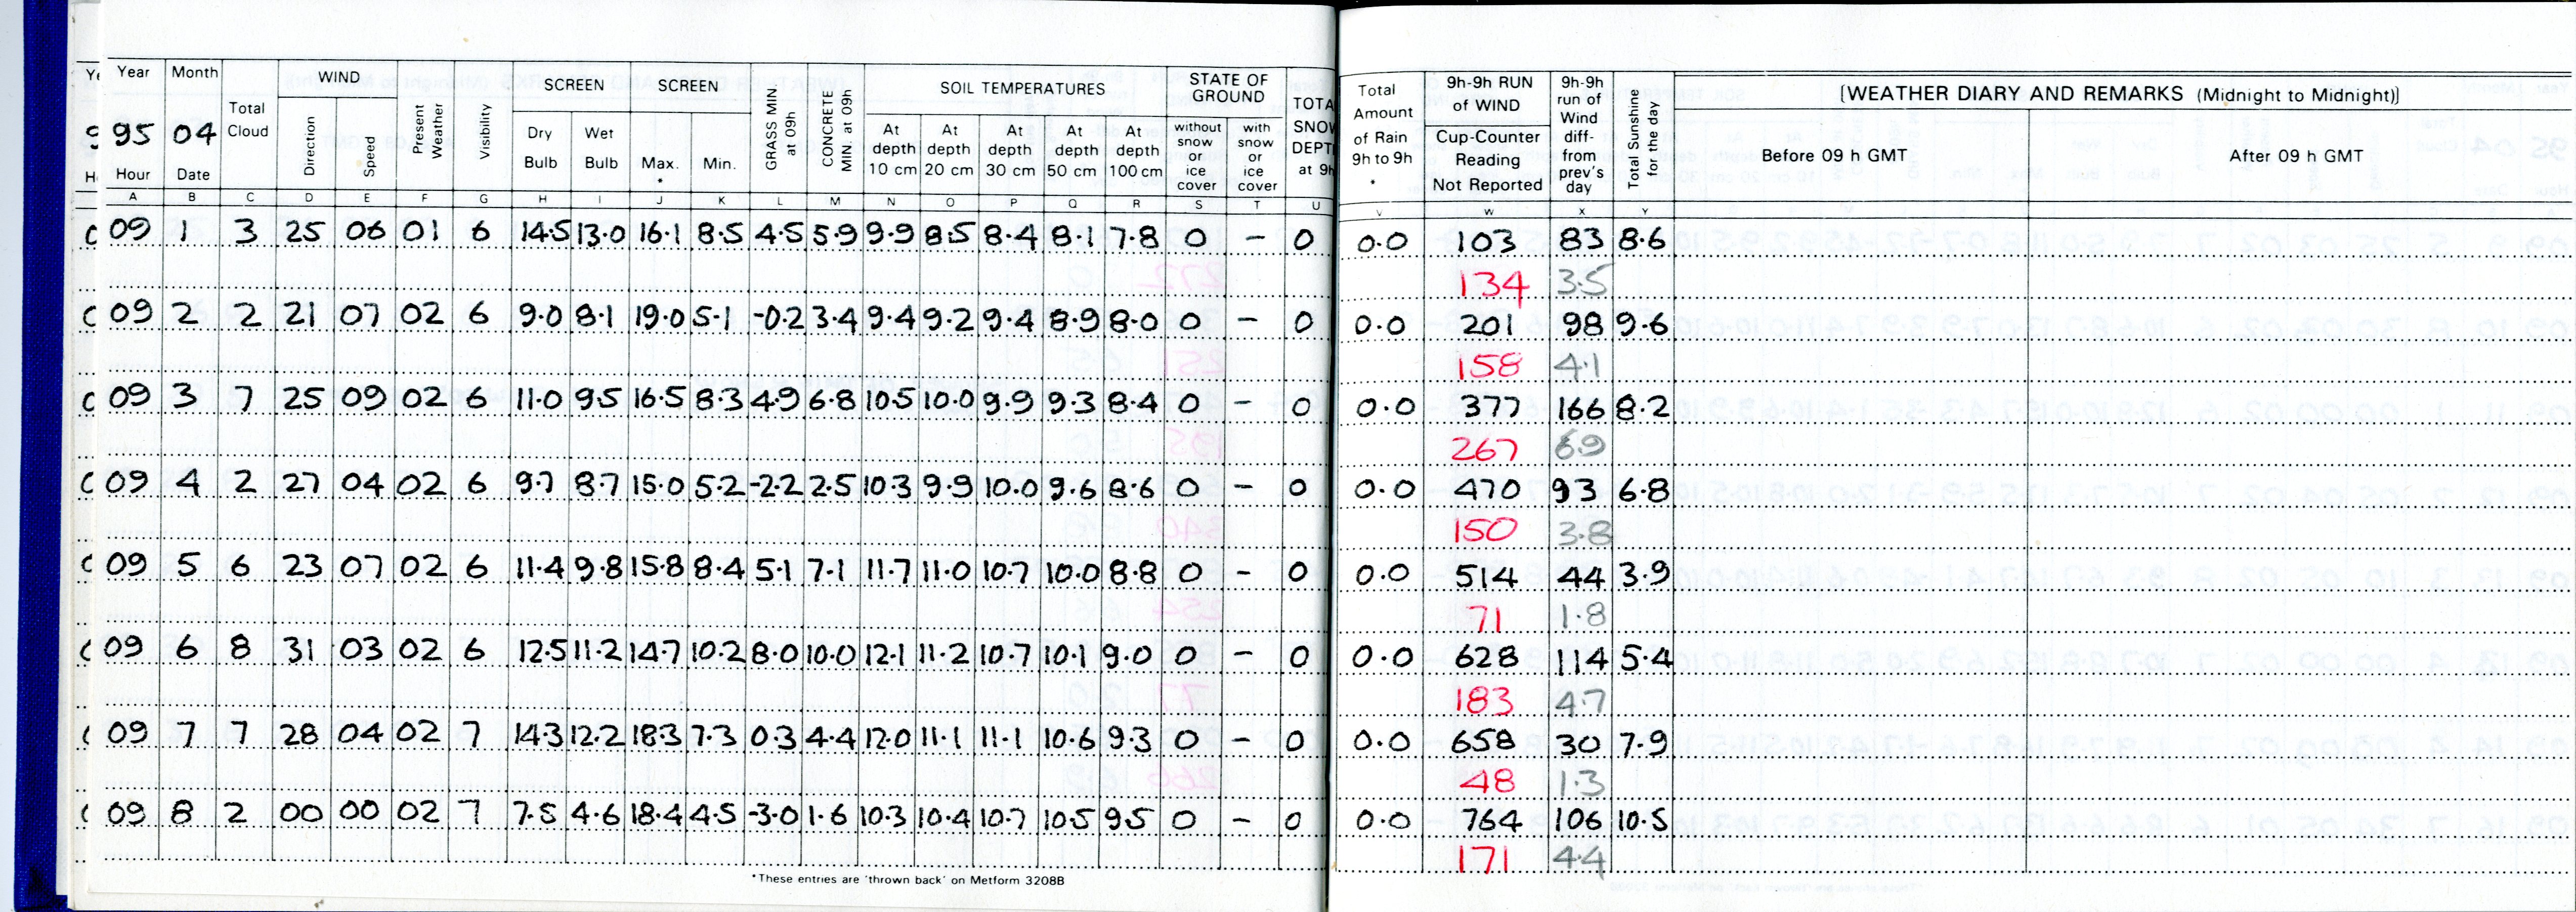 Year Month Total Cloud WIND Present Weather Visibility SCREEN SCREEN GRASS MIN. at 09h CONCRETE MIN. at 09h SOIL TEMPERATURES STATE OF GROUND TOTA SNOW DEPT at 9h Total Amount of Rain 9h to 9h * 9h-9h RUN of WIND 9h-9h run of Wind diff- from prev's day Total Sunshine for the day [WEATHER DIARY AND REMARKS (Midnight to Midnight)]
95 04 Direction Speed Dry Bulb Wet Bulb Max. * Min. At depth 10 cm At depth 20 cm At depth 30 cm At depth 50 cm At depth 100 cm without snow or ice cover with snow or ice cover Cup-Counter Reading Not Reported Before 09 h GMT After 09 h GMT
Hour Date
A B C D E F G H I J K L M N O P Q R S T U V W X Y
09 1 3 25 06 01 6 14.5 13.0 16.1 8.5 4.5 5.9 9.9 8.5 8.4 8.1 7.8 0 - 0 0.0 103 83 8.6
134 3.5
09 2 2 21 07 02 6 9.0 8.1 19.0 5.1 -0.2 3.4 9.4 9.2 9.4 8.9 8.0 0 - 0 0.0 201 98 9.6
158 4.1
09 3 7 25 09 02 6 11.0 9.5 16.5 8.3 4.9 6.8 10.5 10.0 9.9 9.3 8.4 0 - 0 0.0 377 166 8.2
267 6.9
09 4 2 27 04 02 6 9.7 8.7 15.0 5.2 -2.2 2.5 10.3 9.9 10.0 9.6 8.6 0 - 0 0.0 470 93 6.8
150 3.8
09 5 6 23 07 02 6 11.4 9.8 15.8 8.4 5.1 7.1 11.7 11.0 10.7 10.0 8.8 0 - 0 0.0 514 44 3.9
71 1.8
09 6 8 31 03 02 6 12.5 11.2 14.7 10.2 8.0 10.0 12.1 11.2 10.7 10.1 9.0 0 - 0 0.0 628 114 5.4
183 4.7
09 7 7 28 04 02 7 14.3 12.2 18.3 7.3 0.3 4.4 12.0 11.1 11.1 10.6 9.3 0 - 0 0.0 658 30 7.9
48 1.3
09 8 2 00 00 02 7 7.5 4.6 18.4 4.5 -3.0 1.6 10.3 10.4 10.7 10.5 9.5 0 - 0 0.0 764 106 10.5
171 4.4
*These entries are 'thrown back' on Metform 3208B